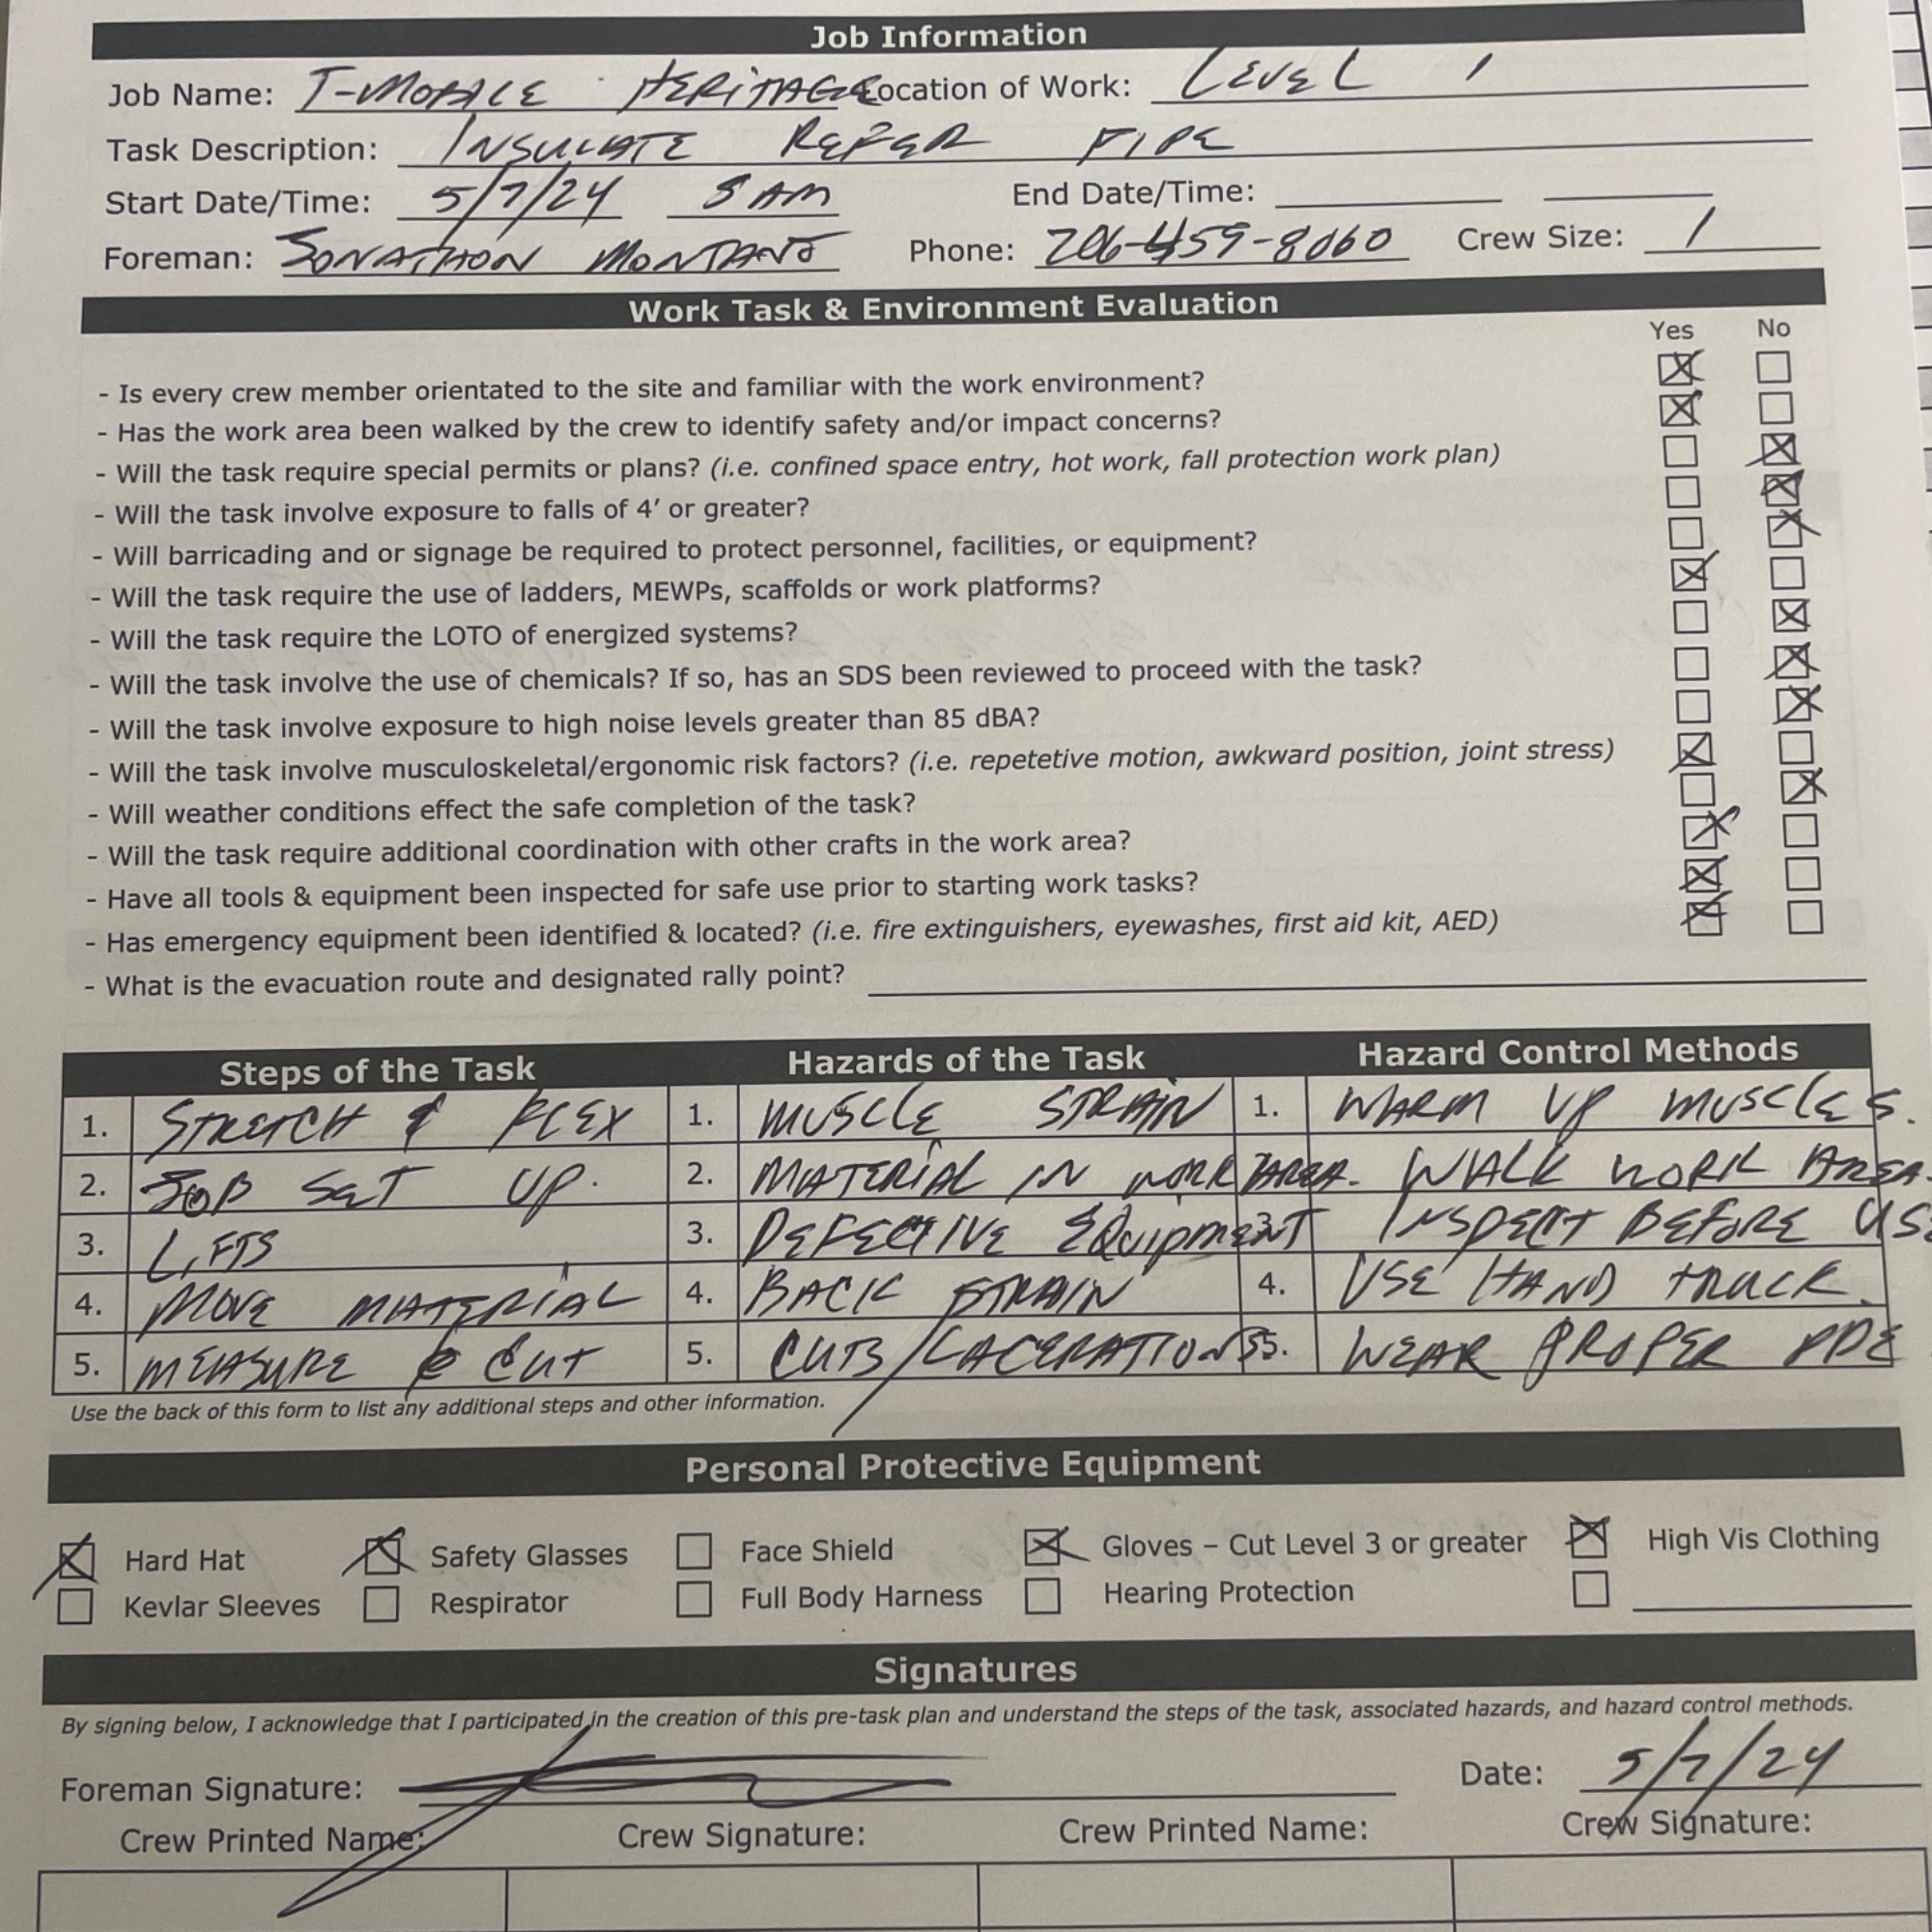 Job Information
Job Name: T-MOBILE HERITAGE Location of Work: LEVEL 1
Task Description: INSULATE REFER PIPE
Start Date/Time: 5/7/24 5 AM End Date/Time:
Foreman: JONATHON MONTANO Phone: 206-459-8060 Crew Size: 1
Work Task & Environment Evaluation
Yes No
- Is every crew member orientated to the site and familiar with the work environment?
- Has the work area been walked by the crew to identify safety and/or impact concerns?
- Will the task require special permits or plans? (i.e. confined space entry, hot work, fall protection work plan)
- Will the task involve exposure to falls of 4' or greater?
- Will barricading and or signage be required to protect personnel, facilities, or equipment?
- Will the task require the use of ladders, MEWPs, scaffolds or work platforms?
- Will the task require the LOTO of energized systems?
- Will the task involve the use of chemicals? If so, has an SDS been reviewed to proceed with the task?
- Will the task involve exposure to high noise levels greater than 85 dBA?
- Will the task involve musculoskeletal/ergonomic risk factors? (i.e. repetetive motion, awkward position, joint stress)
- Will weather conditions effect the safe completion of the task?
- Will the task require additional coordination with other crafts in the work area?
- Have all tools & equipment been inspected for safe use prior to starting work tasks?
- Has emergency equipment been identified & located? (i.e. fire extinguishers, eyewashes, first aid kit, AED)
- What is the evacuation route and designated rally point?
Steps of the Task Hazards of the Task Hazard Control Methods
1. STRETCH & FLEX 1. MUSCLE STRAIN 1. WARM UP MUSCLES.
2. JOB SET UP. 2. MATERIAL IN WORK AREA. WALK WORK AREA.
3. LIFTS 3. DEFECTIVE EQUIPMENT 3. INSPECT BEFORE USE
4. MOVE MATERIAL 4. BACK STRAIN 4. USE HAND TRUCK.
5. MEASURE & CUT 5. CUTS/LACERATIONS 5. WEAR PROPER PPE
Use the back of this form to list any additional steps and other information.
Personal Protective Equipment
Hard Hat Safety Glasses Face Shield Gloves – Cut Level 3 or greater High Vis Clothing
Kevlar Sleeves Respirator Full Body Harness Hearing Protection
Signatures
By signing below, I acknowledge that I participated in the creation of this pre-task plan and understand the steps of the task, associated hazards, and hazard control methods.
Foreman Signature: Date: 5/7/24
Crew Printed Name: Crew Signature: Crew Printed Name: Crew Signature: